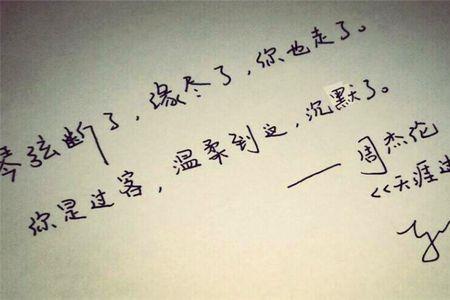 琴弦断了，缘尽了，你也走了。
你是过客，温柔到这，沉默了。
——周杰伦
《天涯过